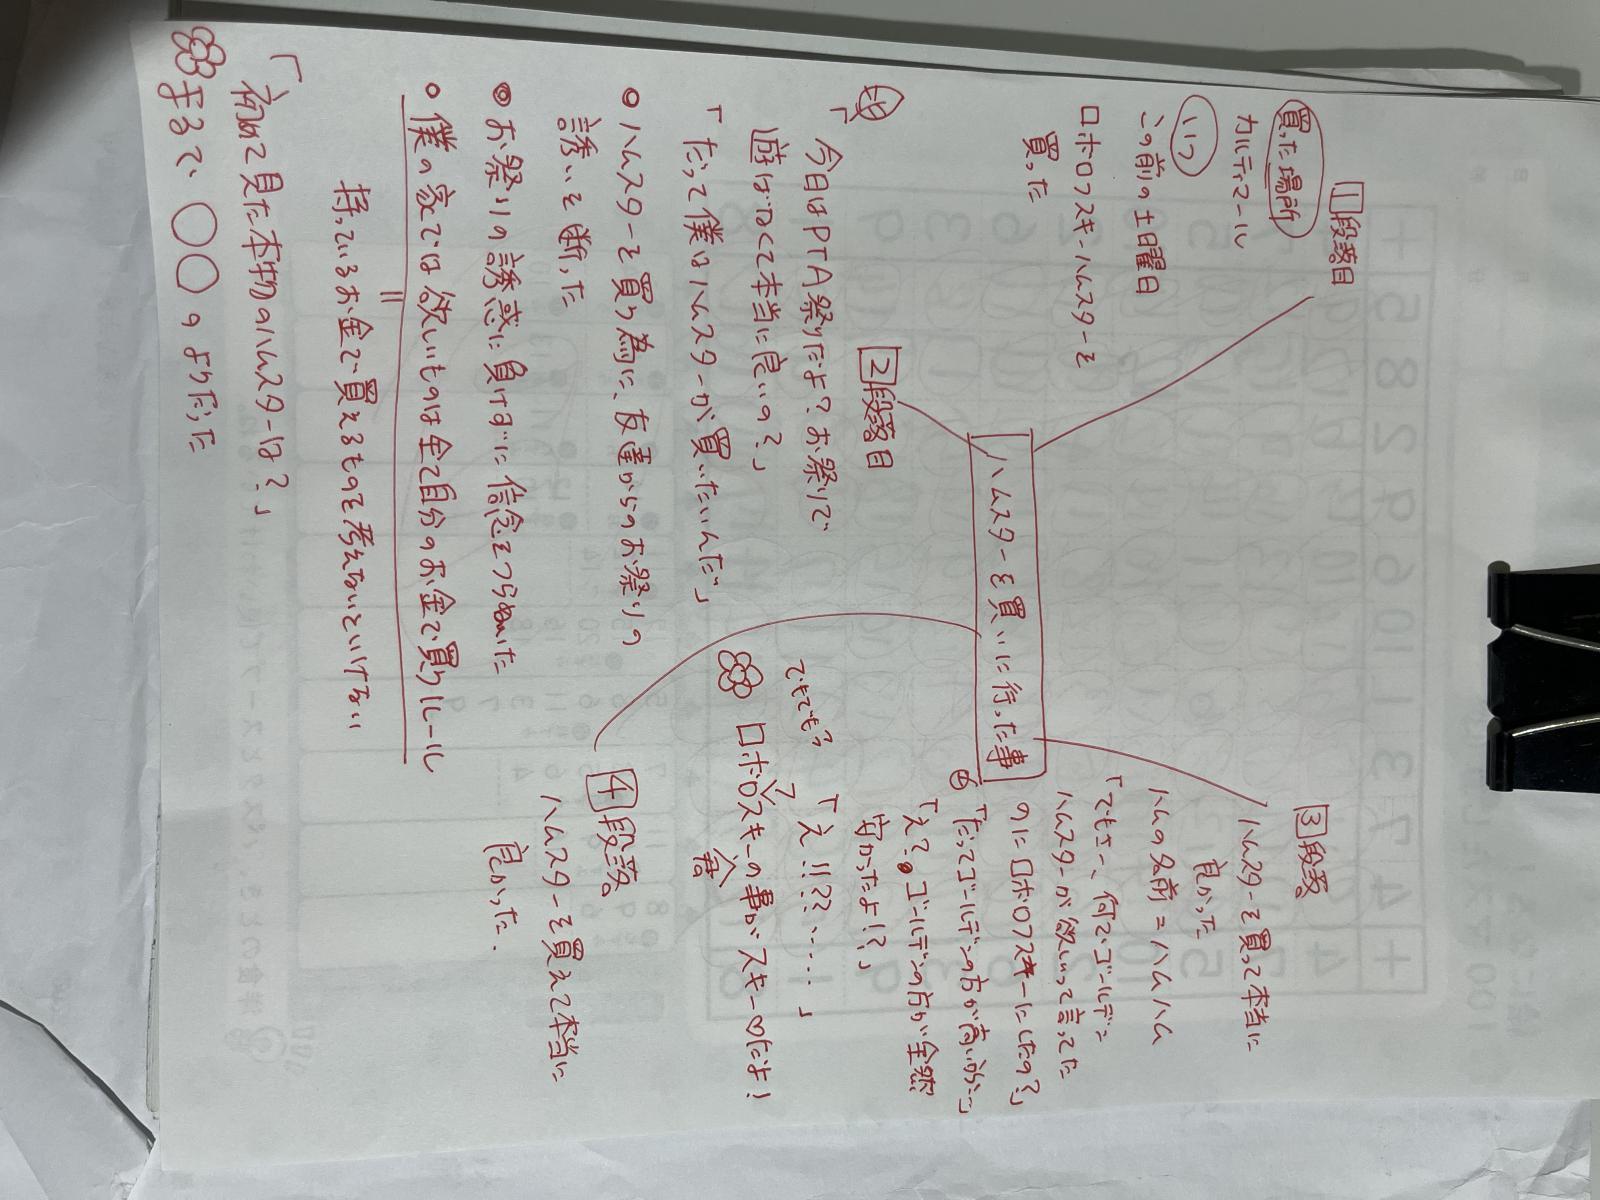 1段落目
買った場所
カルディマール
いつ
この前の土曜日
ロボロフスキーハムスターを
買った
ハムスターを買いに行った事
2段落目
母
「今日はPTA祭りだよ?お祭りで
遊ばなくて本当に良いの?」
「だって僕はハムスターが買いたいんだ」
ハムスターを買う為に、友達からのお祭りの
誘いを断った
お祭りの誘惑に負けずに信念をつらぬいた
僕の家では欲しいものは全て自分のお金で買うルール
=
持っているお金で買えるものを考えないといけない
「初めて見た本物のハムスターは?」
まるで〇〇のようだった
3段落
ハムスターを買って本当に
良かった
ハムの名前=ハムハム
「でもさー、何でゴールデン
ハムスターが欲しいって言ってた
のにロボロフスキーにしたの?」
「だってゴールデンの方が高いから…」
「え?ゴールデンの方が全然
安かったよ!?」
「え!!??……」
でもでも?
ロボロフスキーの事がスキー♡だよ!
君
4段落
ハムスターを買えて本当に
良かった.